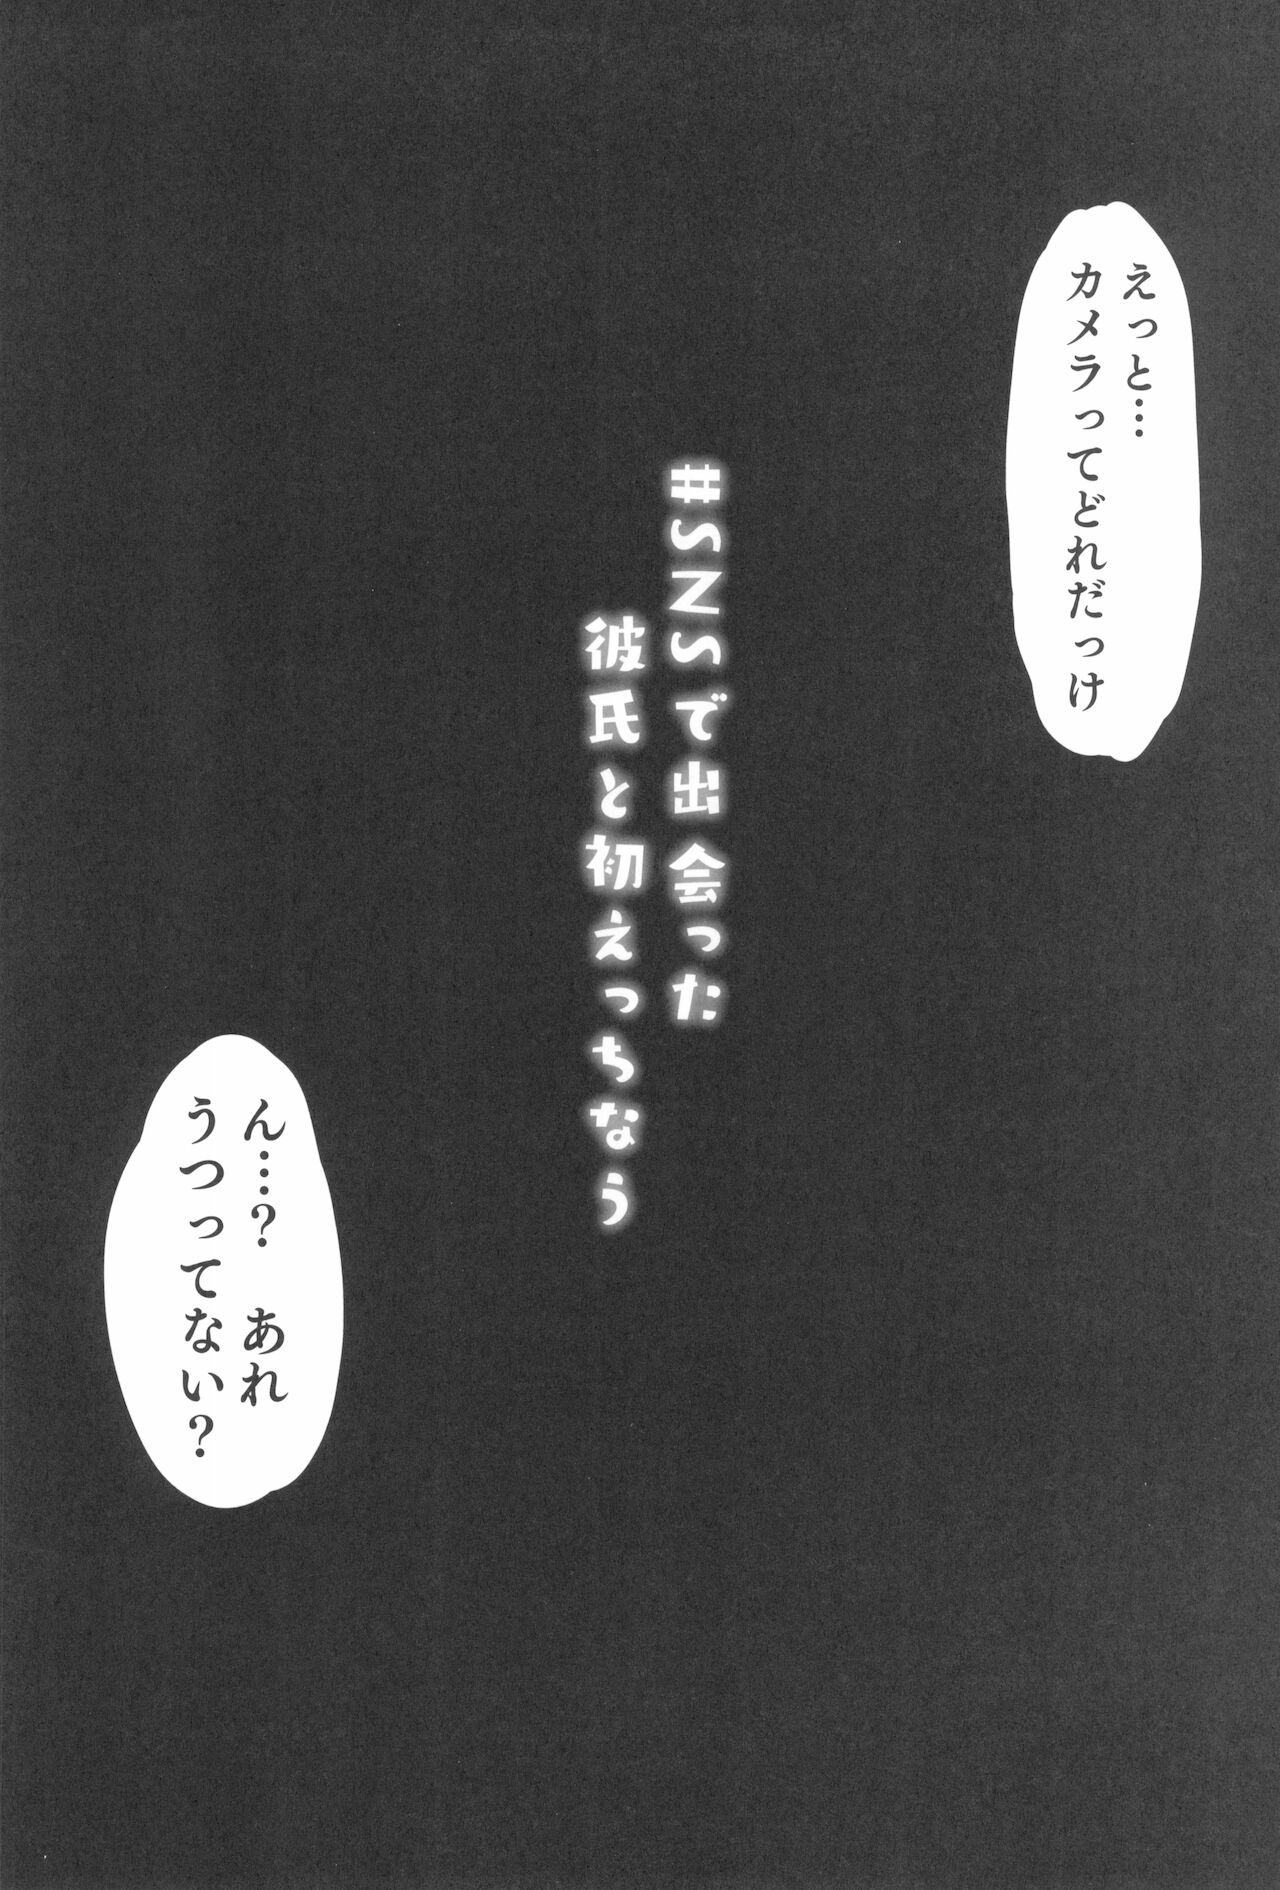 えっと…
カメラってどれだっけ
#SNSで出会った
彼氏と初えっちなう
ん…？　あれ
うつってない？